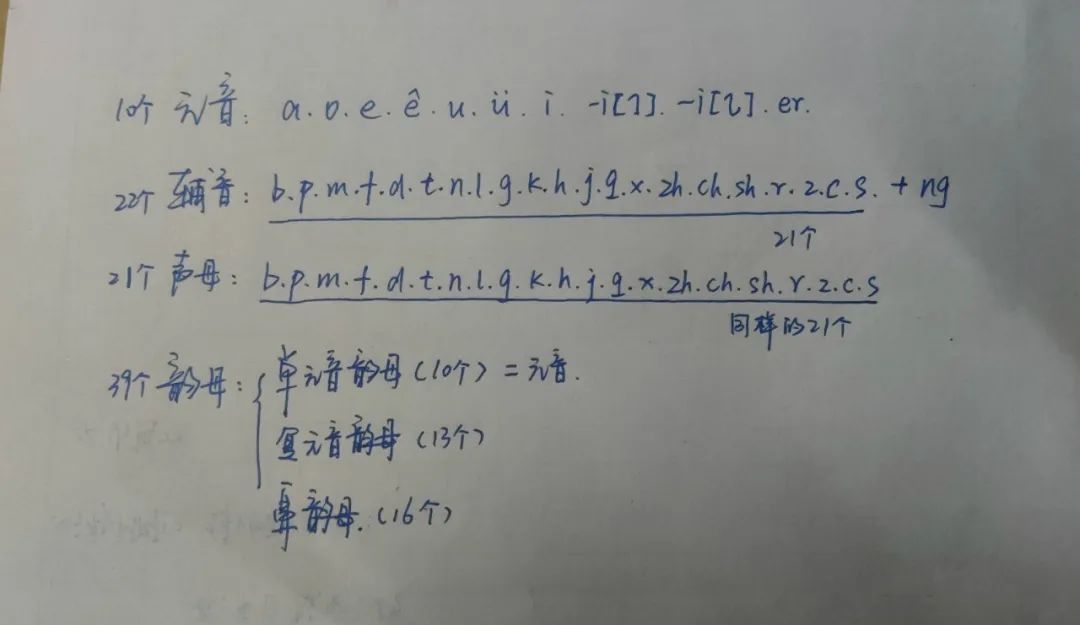 10个元音: a.o.e.ê.u.ü.i.-i[ɿ].-i[ʅ].er.
22个辅音: b.p.m.f.d.t.n.l.g.k.h.j.q.x.zh.ch.sh.r.z.c.s.+ng
21个
21个声母: b.p.m.f.d.t.n.l.g.k.h.j.q.x.zh.ch.sh.r.z.c.s
同样的21个
39个韵母: { 单元音韵母(10个)=元音.
复元音韵母(13个)
鼻韵母.(16个)